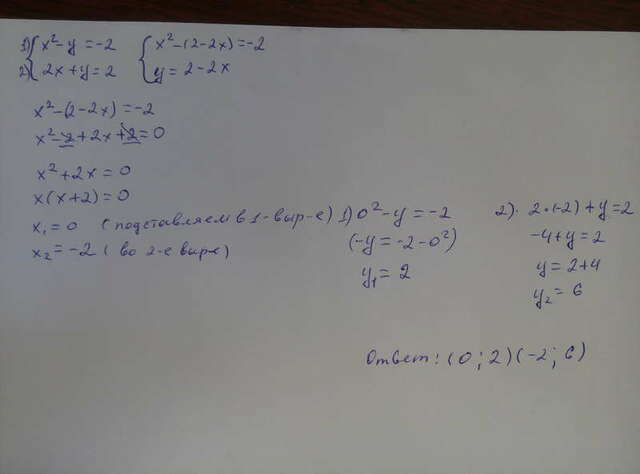 1) { x² - y = -2 { x² - (2 - 2x) = -2
2) { 2x + y = 2 { y = 2 - 2x
x² - (2 - 2x) = -2
x² - 2 + 2x + 2 = 0
x² + 2x = 0
x(x + 2) = 0
x₁ = 0 (подставляем в 1-выр-е)
x₂ = -2 (во 2-е выр-е)
1) 0² - y = -2
(-y = -2 - 0²)
y₁ = 2
2). 2·(-2) + y = 2
-4 + y = 2
y = 2 + 4
y₂ = 6
Ответ: (0; 2) (-2; 6)